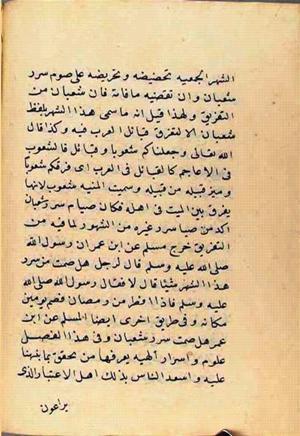 الشهر الجمعيه تحضيضه وتحريضه على صوم سرر
شعبان وان تقضيه ما فاته فان شعبان من
التفريق ولهذا قيل انه ما سمى هذا الشهر بلفظ
شعبان الا لتفرق قبائل العرب فيه وكذا قال
الله تعالى وجعلناكم شعوبا وقبائل فالشعوب
فى الاعاجم كالقبائل فى العرب اى فرقكم شعوبا
وميز قبيله من قبيله وسميت المنيه شعوب لانها
يفرق بين الميت فى اهله فكان صيام سرر شعبان
اكد من صيام سرر غيره من الشهور لما فيه من
التفريق خرج مسلم عن ابن عمران رسول الله
صلى الله عليه وسلم قال لرجل هل صمت من سرر
هذا الشهر شئا قال لا فقال رسول الله صلى الله
عليه وسلم فاذا افطر من رمضان فصم يومين
مكانه وفى طريق اخرى ايضا المسلم عن ابن
عمر هل صمت سرر شعبان وفى هذا الفصل
علوم واسرار الهيه يعرفها من تحقق بما نبهنا
عليه واسعد الناس بذلك اهل الاعتبار الذى
يراعون